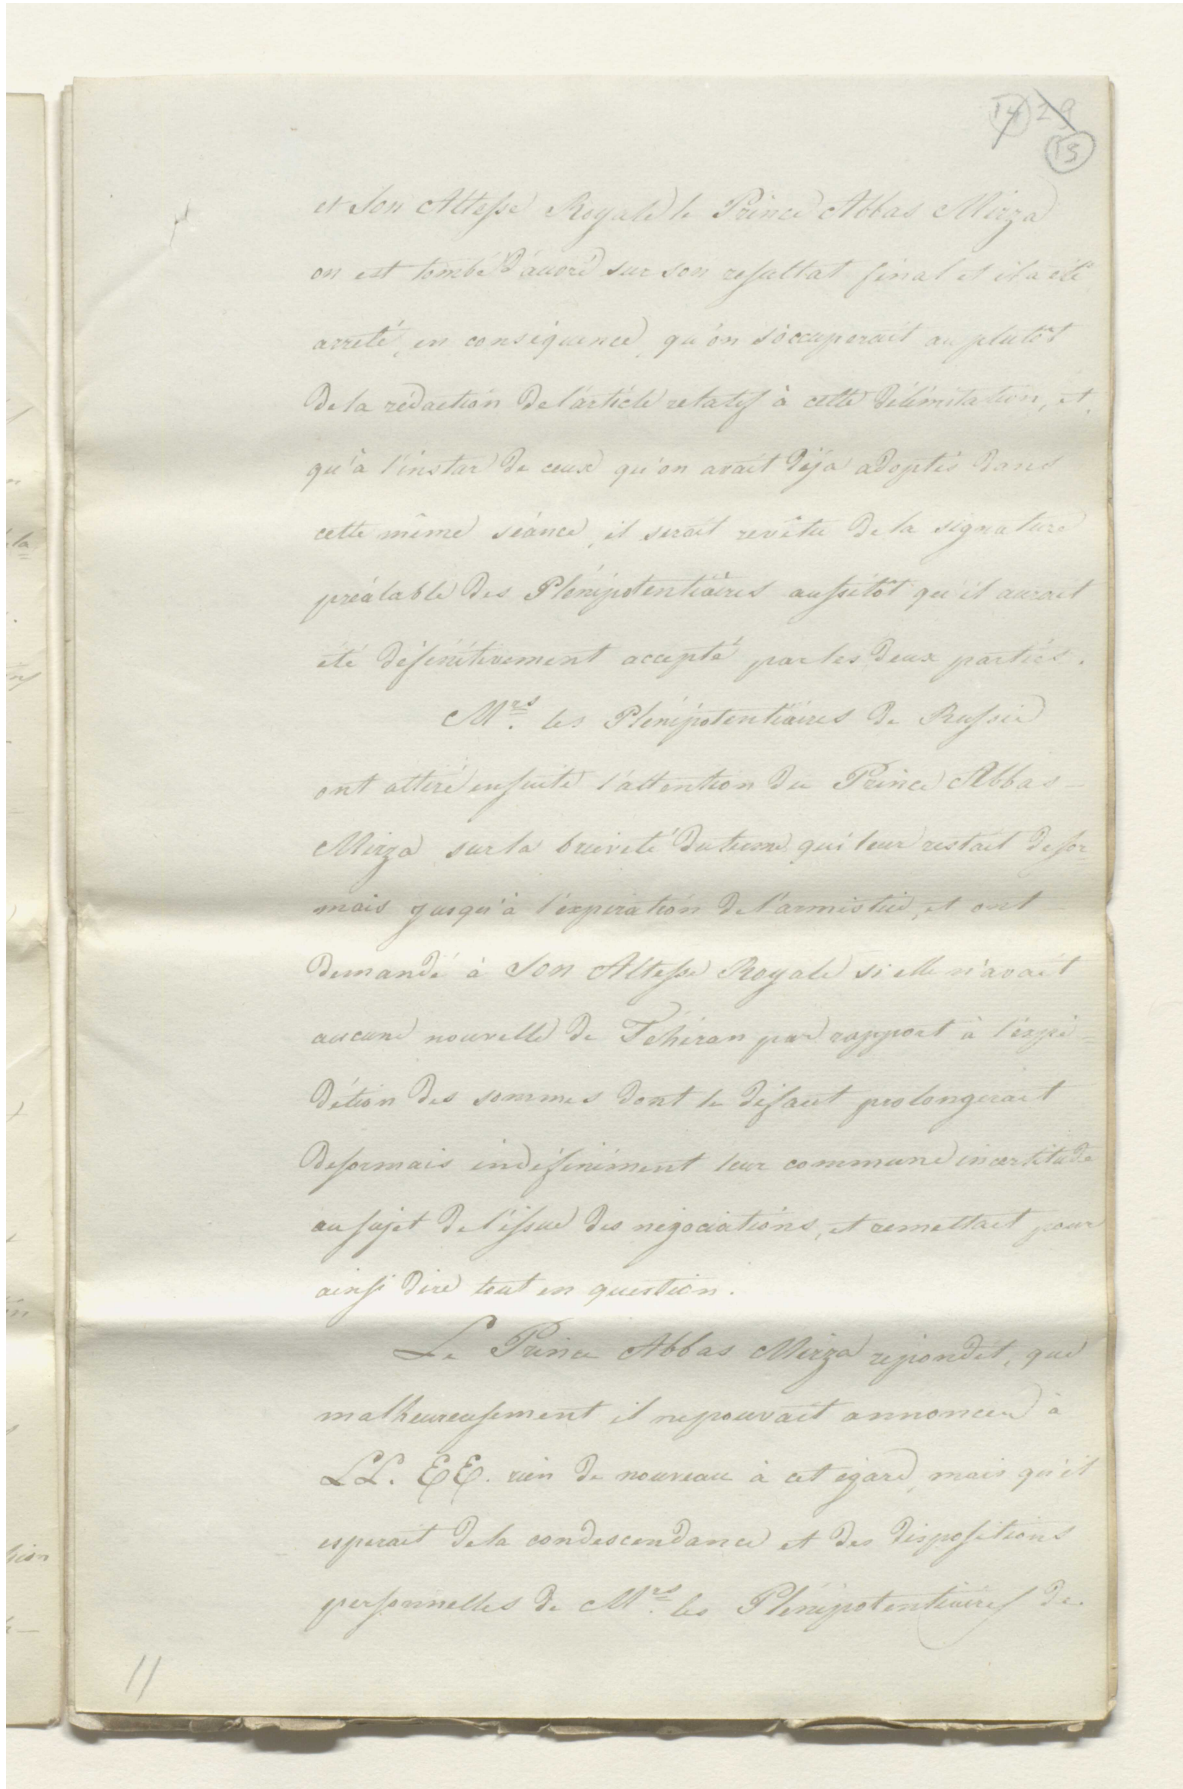 14 29
15
et Son Altesse Royale le Prince Abbas Mirza
on est tombé d'accord sur son resultat final et il a été
arreté, en conséquence, qu'on s'occuperait au plutôt
de la rédaction de l'article relatif à cette délimitation, et,
qu'à l'instar de ceux qu'on avait déja adoptés dans
cette même séance, il serait revêtu de la signature
préalable des Plénipotentiaires aussitôt qu'il aurait
été définitivement accepté par les deux parties.
Mrs. les Plénipotentiaires de Russie
ont attiré ensuite l'attention du Prince Abbas-
Mirza sur la brièveté du terme qui leur restait desor
mais jusqu'à l'expiration de l'armistice, et ont
demandé à Son Altesse Royale si elle n'avait
aucune nouvelle de Téhéran par rapport à l'expé=
dition des sommes dont le défaut prolongerait
desormais indéfiniment leur commune incertitude
au sujet de l'issue des négociations, et remettait pour
ainsi dire tout en question.
Le Prince Abbas Mirza répondit, que
malheureusement il ne pouvait annoncer à
LL. EE. rien de nouveau à cet égard, mais qu'il
esperait de la condescendance et des dispositions
personnelles de Mrs. les Plénipotentiaires de
11